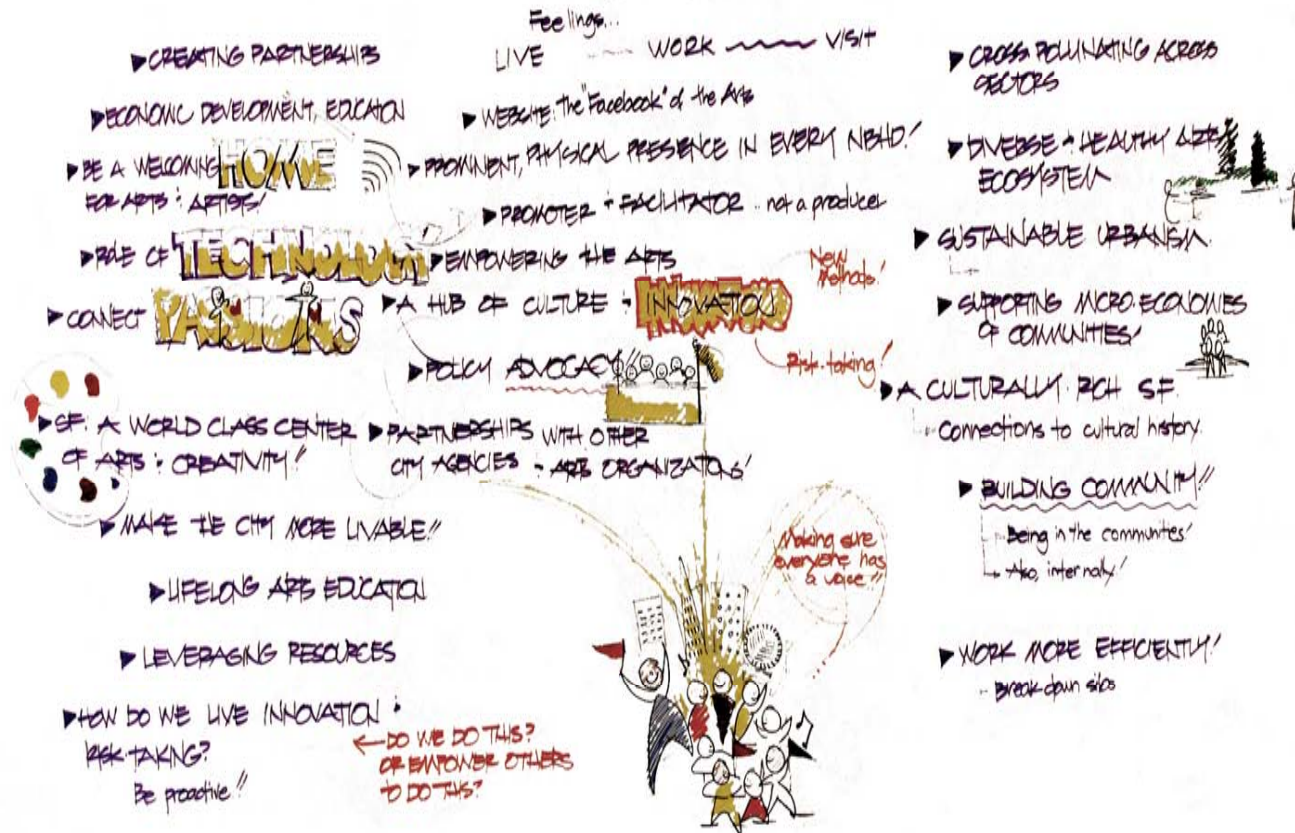 ▶ CREATING PARTNERSHIPS
▶ ECONOMIC DEVELOPMENT, EDUCATION
▶ BE A WELCOMING HOME
FOR ARTS + ARTISTS!
▶ ROLE OF TECHNOLOGY
▶ CONNECT PASSIONS
▶ SF: A WORLD CLASS CENTER
OF ARTS + CREATIVITY!!
▶ MAKE THE CITY MORE LIVABLE!!
▶ LIFELONG ARTS EDUCATION
▶ LEVERAGING RESOURCES
▶ HOW DO WE LIVE INNOVATION +
RISK-TAKING?
Be proactive!!
← DO WE DO THIS?
OR EMPOWER OTHERS
TO DO THIS?
Feelings...
LIVE WORK VISIT
▶ WEBSITE: the "Facebook" of the Arts
▶ PROMINENT, PHYSICAL PRESENCE IN EVERY NBHD!
▶ PROMOTER + FACILITATOR .. not a producer
▶ EMPOWERING THE ARTS
▶ A HUB OF CULTURE + INNOVATION
New Methods!
Risk-taking!
▶ POLICY ADVOCACY!!
▶ PARTNERSHIPS WITH OTHER
CITY AGENCIES + ARTS ORGANIZATIONS!
Making sure
everyone has
a voice!!
▶ CROSS-POLLINATING ACROSS
SECTORS
▶ DIVERSE + HEALTHY ARTS
ECOSYSTEM
▶ SUSTAINABLE URBANISM.
▶ SUPPORTING MICRO-ECONOMIES
OF COMMUNITIES!
▶ A CULTURALLY-RICH SF.
Connections to cultural history.
▶ BUILDING COMMUNITY!!
Being in the communities!
Also, internally!
▶ WORK MORE EFFICIENTLY!
- Break down silos